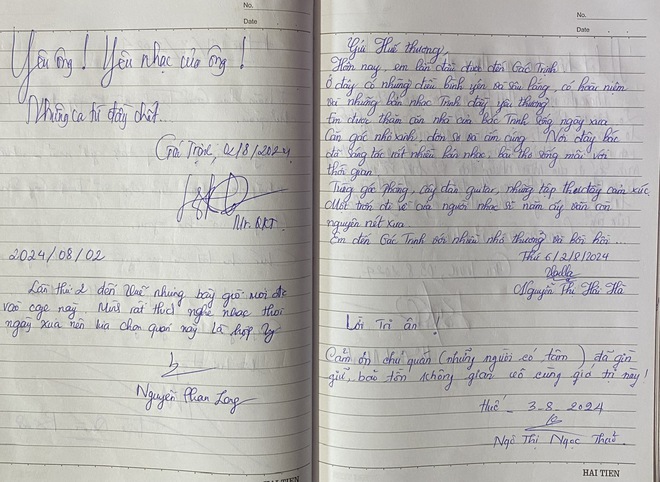 No.
Date
Yêu ông! Yêu nhạc của ông!
Những ca từ đầy chất...
Gác Trịnh, 02/8/2024
Mr. ĐKT.
2024/08/02
Lần thứ 2 đến Huế nhưng bây giờ mới đc
vào cafe này. Mình rất thích nghe nhạc thời
ngày xưa nên lựa chọn quán này là hợp lý
Nguyễn Phan Long
No.
Date
Gửi Huế thương,
Hôm nay, em lần đầu được đến Gác Trịnh
Ở đây có những điều bình yên và sâu lắng, có hoài niệm
và những bản nhạc Trịnh đầy yêu thương
Em được thăm căn nhà của bác Trịnh sống ngày xưa
Căn gác nhỏ xinh, đơn sơ và ấm cúng. Nơi đây bác
đã sáng tác rất nhiều bản nhạc, bài thơ sống mãi với
thời gian.
Từng góc phòng, cây đàn guitar, những tập thơ đầy cảm xúc.
Một trốn đi về của người nhạc sĩ năm ấy vẫn còn
nguyên nét xưa
Em đến Gác Trịnh với nhiều nhớ thương và bồi hồi...
Thứ 6/2/8/2024
Nguyễn Thị Hải Hà
Lời Tri ân!
Cảm ơn chủ quán (những người có tâm) đã gìn
giữ, bảo tồn không gian vô cùng giá trị này!
Huế - 3-8-2024
Ngô Thị Ngọc Thảo.
HAI TIEN